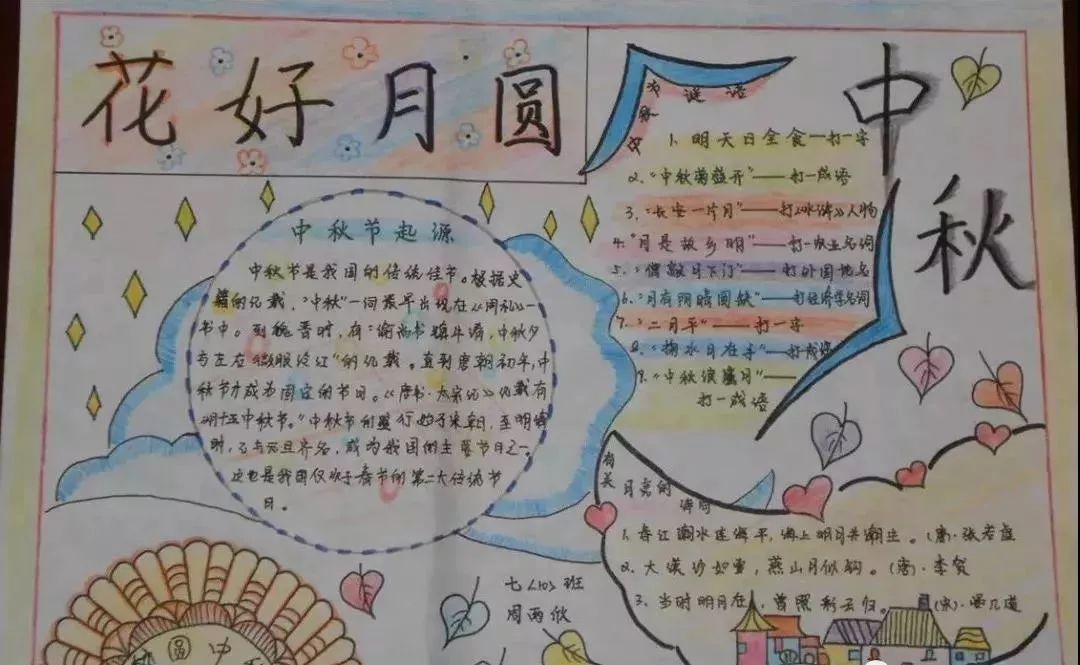 花好月圆
中秋
中秋节起源
中秋节是我国的传统佳节。根据史
籍的记载，“中秋”一词最早出现在《周礼》一
书中。到魏晋时，有“谕尚书镇牛渚，中秋夕
与左右微服泛江”的记载。直到唐朝初年，中
秋节才成为固定的节日。《唐书·太宗记》记载有
“八月十五中秋节。”中秋节的盛行始于宋朝，至明清
时，已与元旦齐名，成为我国的主要节日之一。
这也是我国仅次于春节的第二大传统节
日。
谜语
1. 明天日全食——打一字
2.“中秋菊盛开”——打一成语
3.“长安一片月”——打《水浒》人物
4.“月是故乡明”——打一 业名词
5.“僧敲月下门”——打外国地名
6.“月有阴晴圆缺”——打经济学名词
7.“二月平”——打一字
8.“掬水月在手”——打成语
9.“中秋 月”——
打一成语
有关月亮的
诗句
1. 春江潮水连海平，海上明月共潮生。（唐·张若虚
2. 大漠沙如雪，燕山月似钩。（唐）·李贺
3. 当时明月在，曾照彩云归。（宋）·晏几道
七〈10〉班
周雨欣
圆 中